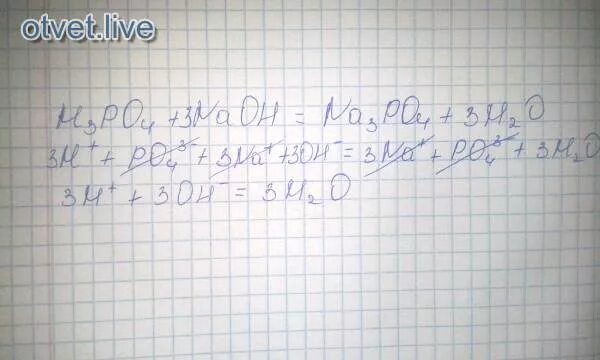 otvet.live
H₃PO₄ + 3NaOH = Na₃PO₄ + 3H₂O
3H⁺ + PO₄³⁻ + 3Na⁺ + 3OH⁻ = 3Na⁺ + PO₄³⁻ + 3H₂O
3H⁺ + 3OH⁻ = 3H₂O